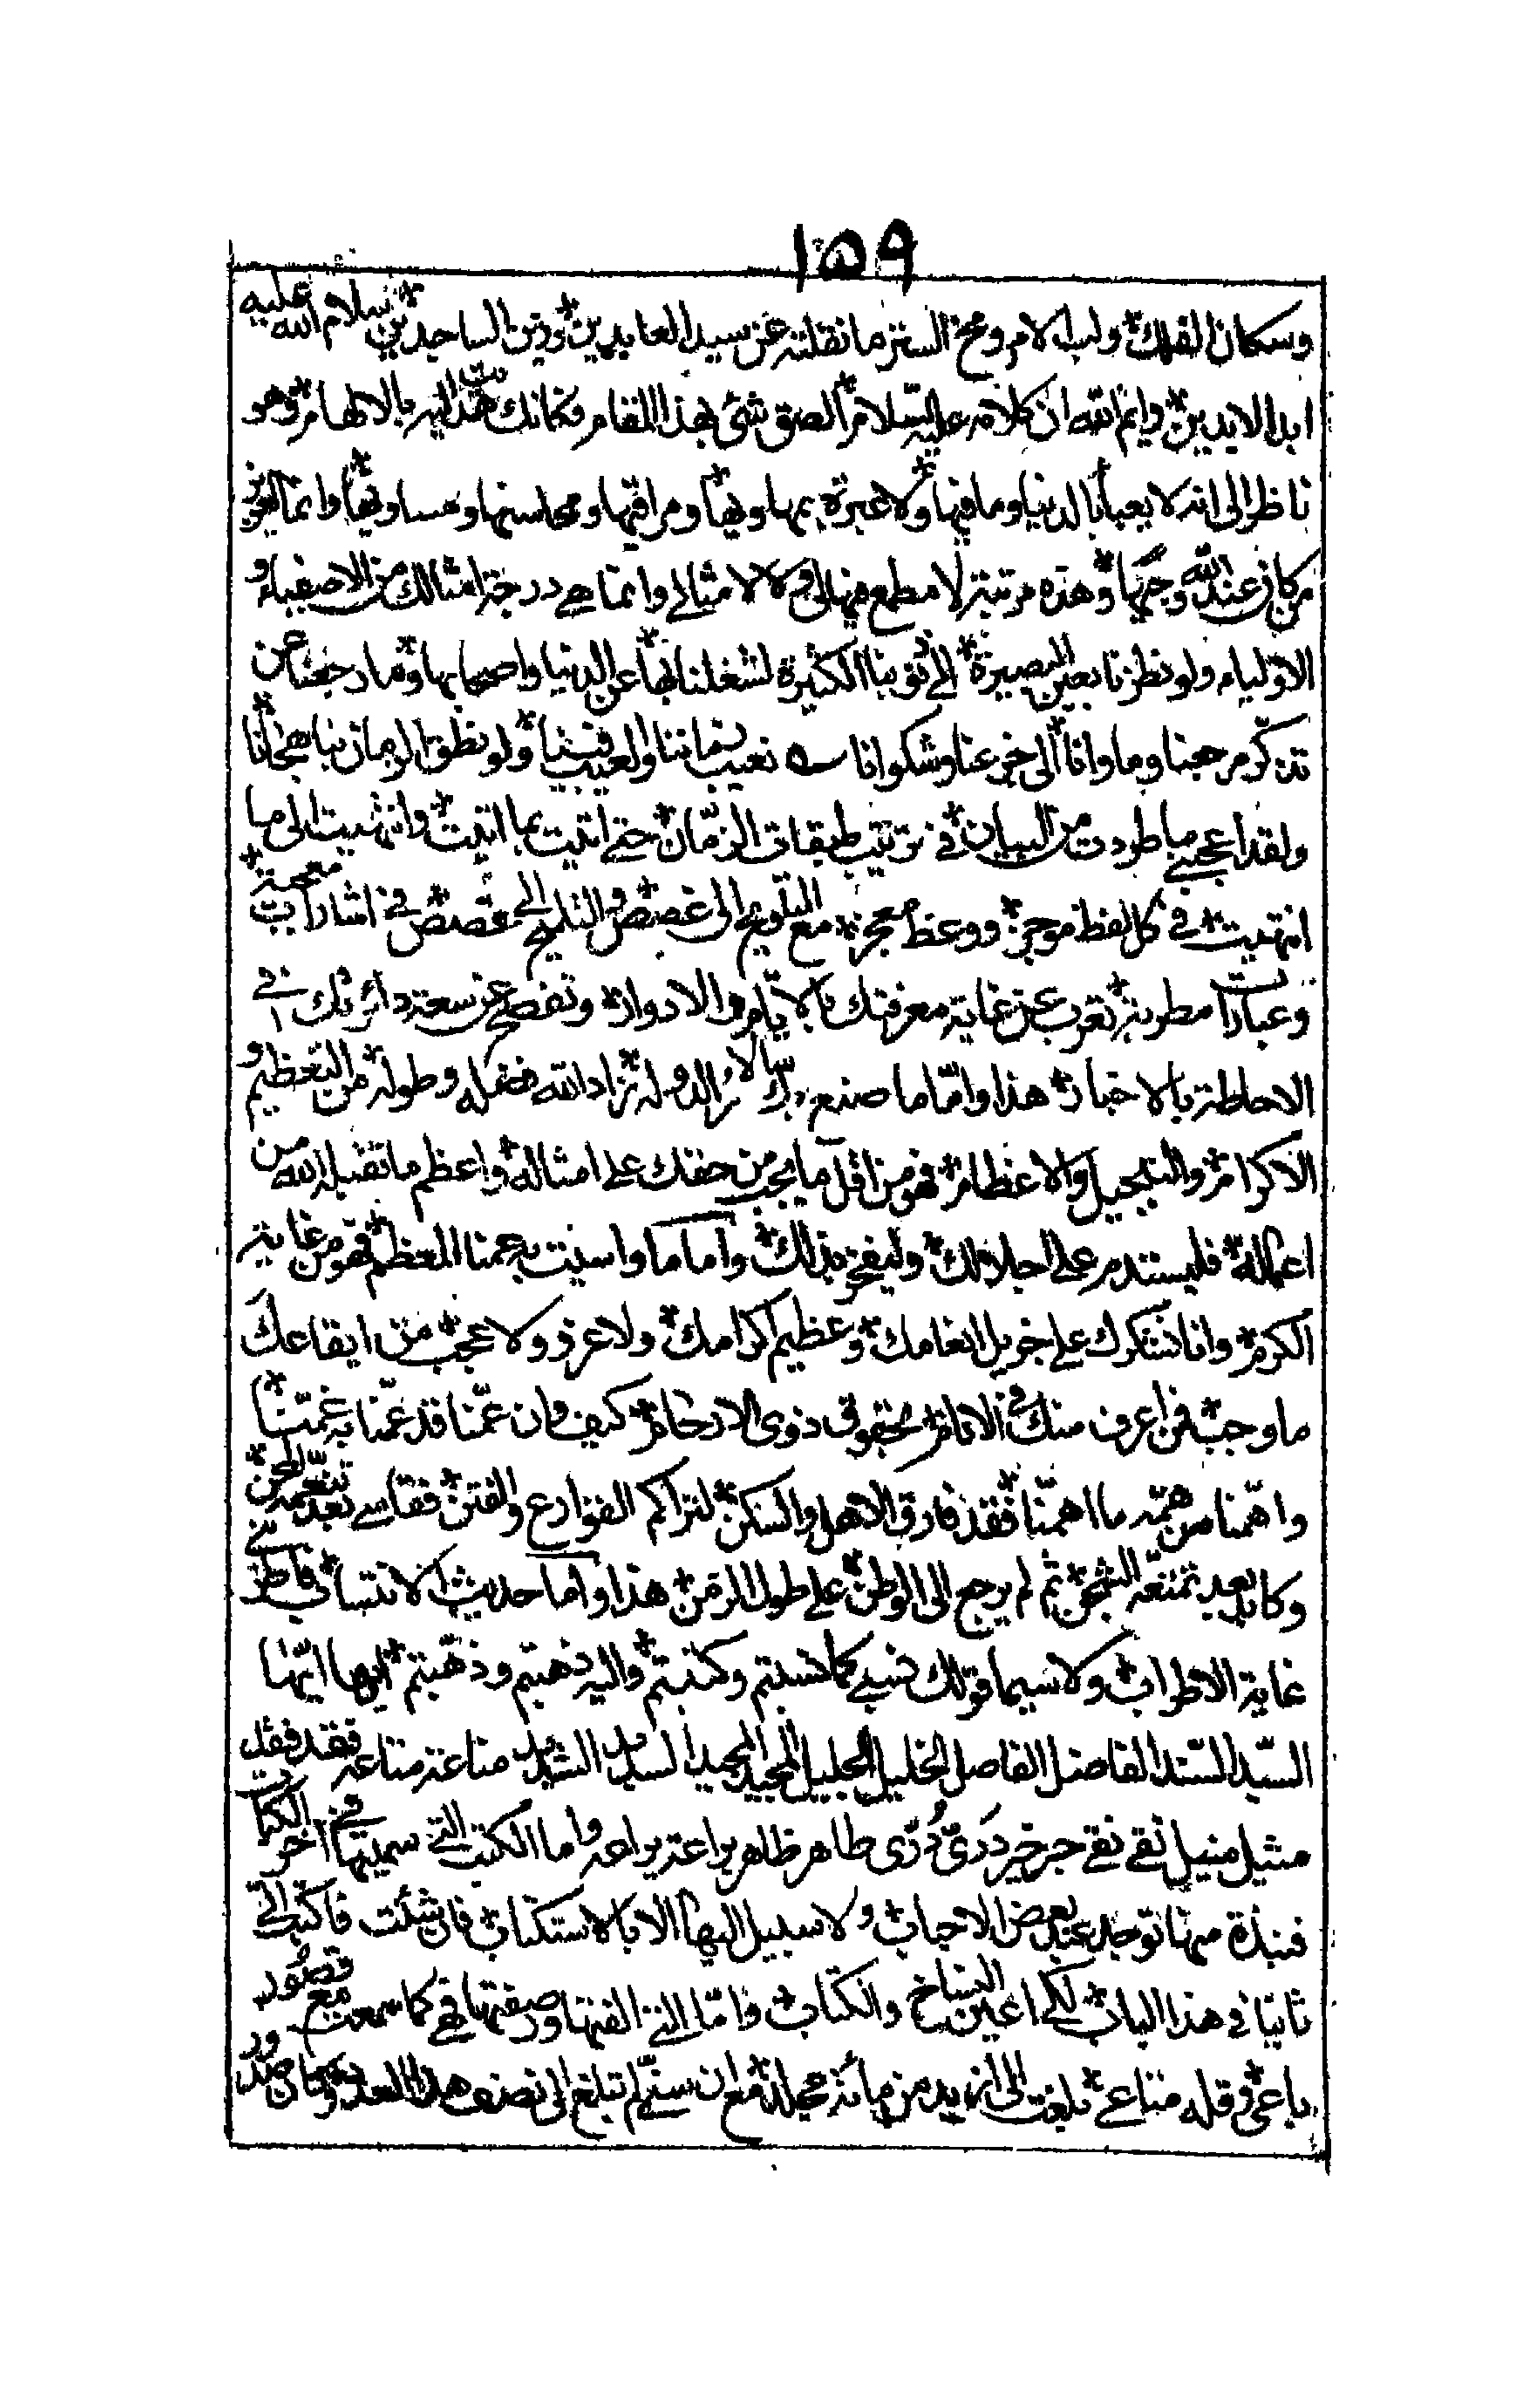 ١٥٩
وسكان الفلك ولب الامر ومخ الستر ما نقلته عن سيد العابدين وزين الساجدين سلام الله عليه
ابد الابدين وايم الله ان كلامه عليه السلام الصق شئ بهذا المقام وكانك اليه بالالهام وهو
ناظر الى انه لا يعبأ بالدنيا وما فيها ولا عبرة بمهاويها ومراقيها ومحاسنها ومساويها وانما
من كان عند الله وجيها وهذه مرتبة لا مطمع فيها لى ولا لامثالى وانما هى درجة امثالك من الاصفياء و
الاولياء ولو نظرنا بعين البصيرة الى ذنوبنا الكثيرة لشغلنا بها عن الدنيا واصحابها وما رجعنا عن
تذكر مرجعنا وماوانا الى جزعنا وشكوانا نعيب زماننا والعيب فينا ولو نطق الزمان بنا هجانا
ولقد اعجبنى ما طردت من البيان فى ترتيب طبقات الزمان حتى اتيت بما اتيت وانتهيت الى ما
انتهيت فى كل لفظ موجز ووعظ معجز مع التلويح الى غصص والتلميح الى قصص فى اشارات معجبة
وعبارات مطربة تعرب عن غاية معرفتك بالايام والادوار وتفصح عن سعة دائرتك فى
الاحاطة بالاخبار هذا واما ما صنع بك سالار الدولة زاد الله فضله وطوله من التعظيم و
الاكرام والتبجيل والاعظام فهو من اقل ما يجب من حقك على امثاله واعظم ما تقبله الله من
اعماله فليستدم على اجلالك وليفخر بذلك واما ما واسيت به عمنا المعظم فهو من غاية
الكرم وانا نشكرك على جزيل انعامك وعظيم اكرامك ولا غرو ولا عجب من ايقاعك
ما وجب فمن اعرف منك فى الانام بحقوق ذوى الارحام كيف وان عمنا قد عمنا به غمتنا
واهمنا من همه ما اهمنا فقد فارق الاهل والسكن لتراكم الفوادع والفتن فقاسى بعد تنعمه المحن
وكابد بعد تمتعه الشجن ثم لم يرجع الى الوطن على طول الزمن هذا واما حديث الانتساب فاطربنى
غاية الاطراب ولا سيما قولك نسبى كما نسبتم وكتبتم واليه ذهبتم وذهبتم ايها ايها
السيد السند الفاضل الفاصل الخليل الجليل المجيد المجيد السديد الشديد مناعته مناعه فقد فقل
مثيل منيل تقى نقى حبر خير درى درى طاهر ظاهر براعته يراعه واما الكتب التى سميتها فى اخر الكتاب
فنبذة منها توجد عند بعض الاحباب ولا سبيل اليها الا بالاستكتاب فان شئت فاكتب الى
ثانيا فى هذا الباب لكى اعين النساخ والكتاب واما التى الفتها وصنفتها فهى كما سمعت مع قصور
باعى وقلة متاعى بلغت الى ازيد من مائة مجلد مع ان سنى لم تبلغ الى نصف هذا العدد وكان صدور